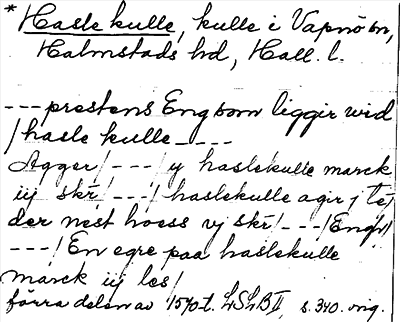 * Hasle kulle, kulle i Vapnö sn,
Halmstads hd, Hall. l.
--- prestens Eng som liggir wid
/hasle kulle ----
Agger/ ---/ ij haslekulle marck
iij skr/ ---/ haslekulle agir j
der nest hoess vj skr/ ---/ Eng/
---/ En egre paa haslekulle
marck iij les/
förra delen av 1570-t. LSLB II, s. 340. orig.